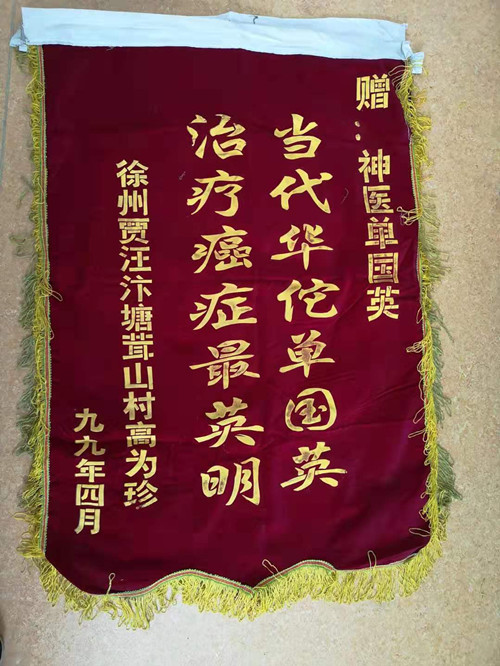 赠：神医单国英
当代华佗单国英
治疗癌症最英明
徐州贾汪汴塘茸山村高为珍
九九年四月